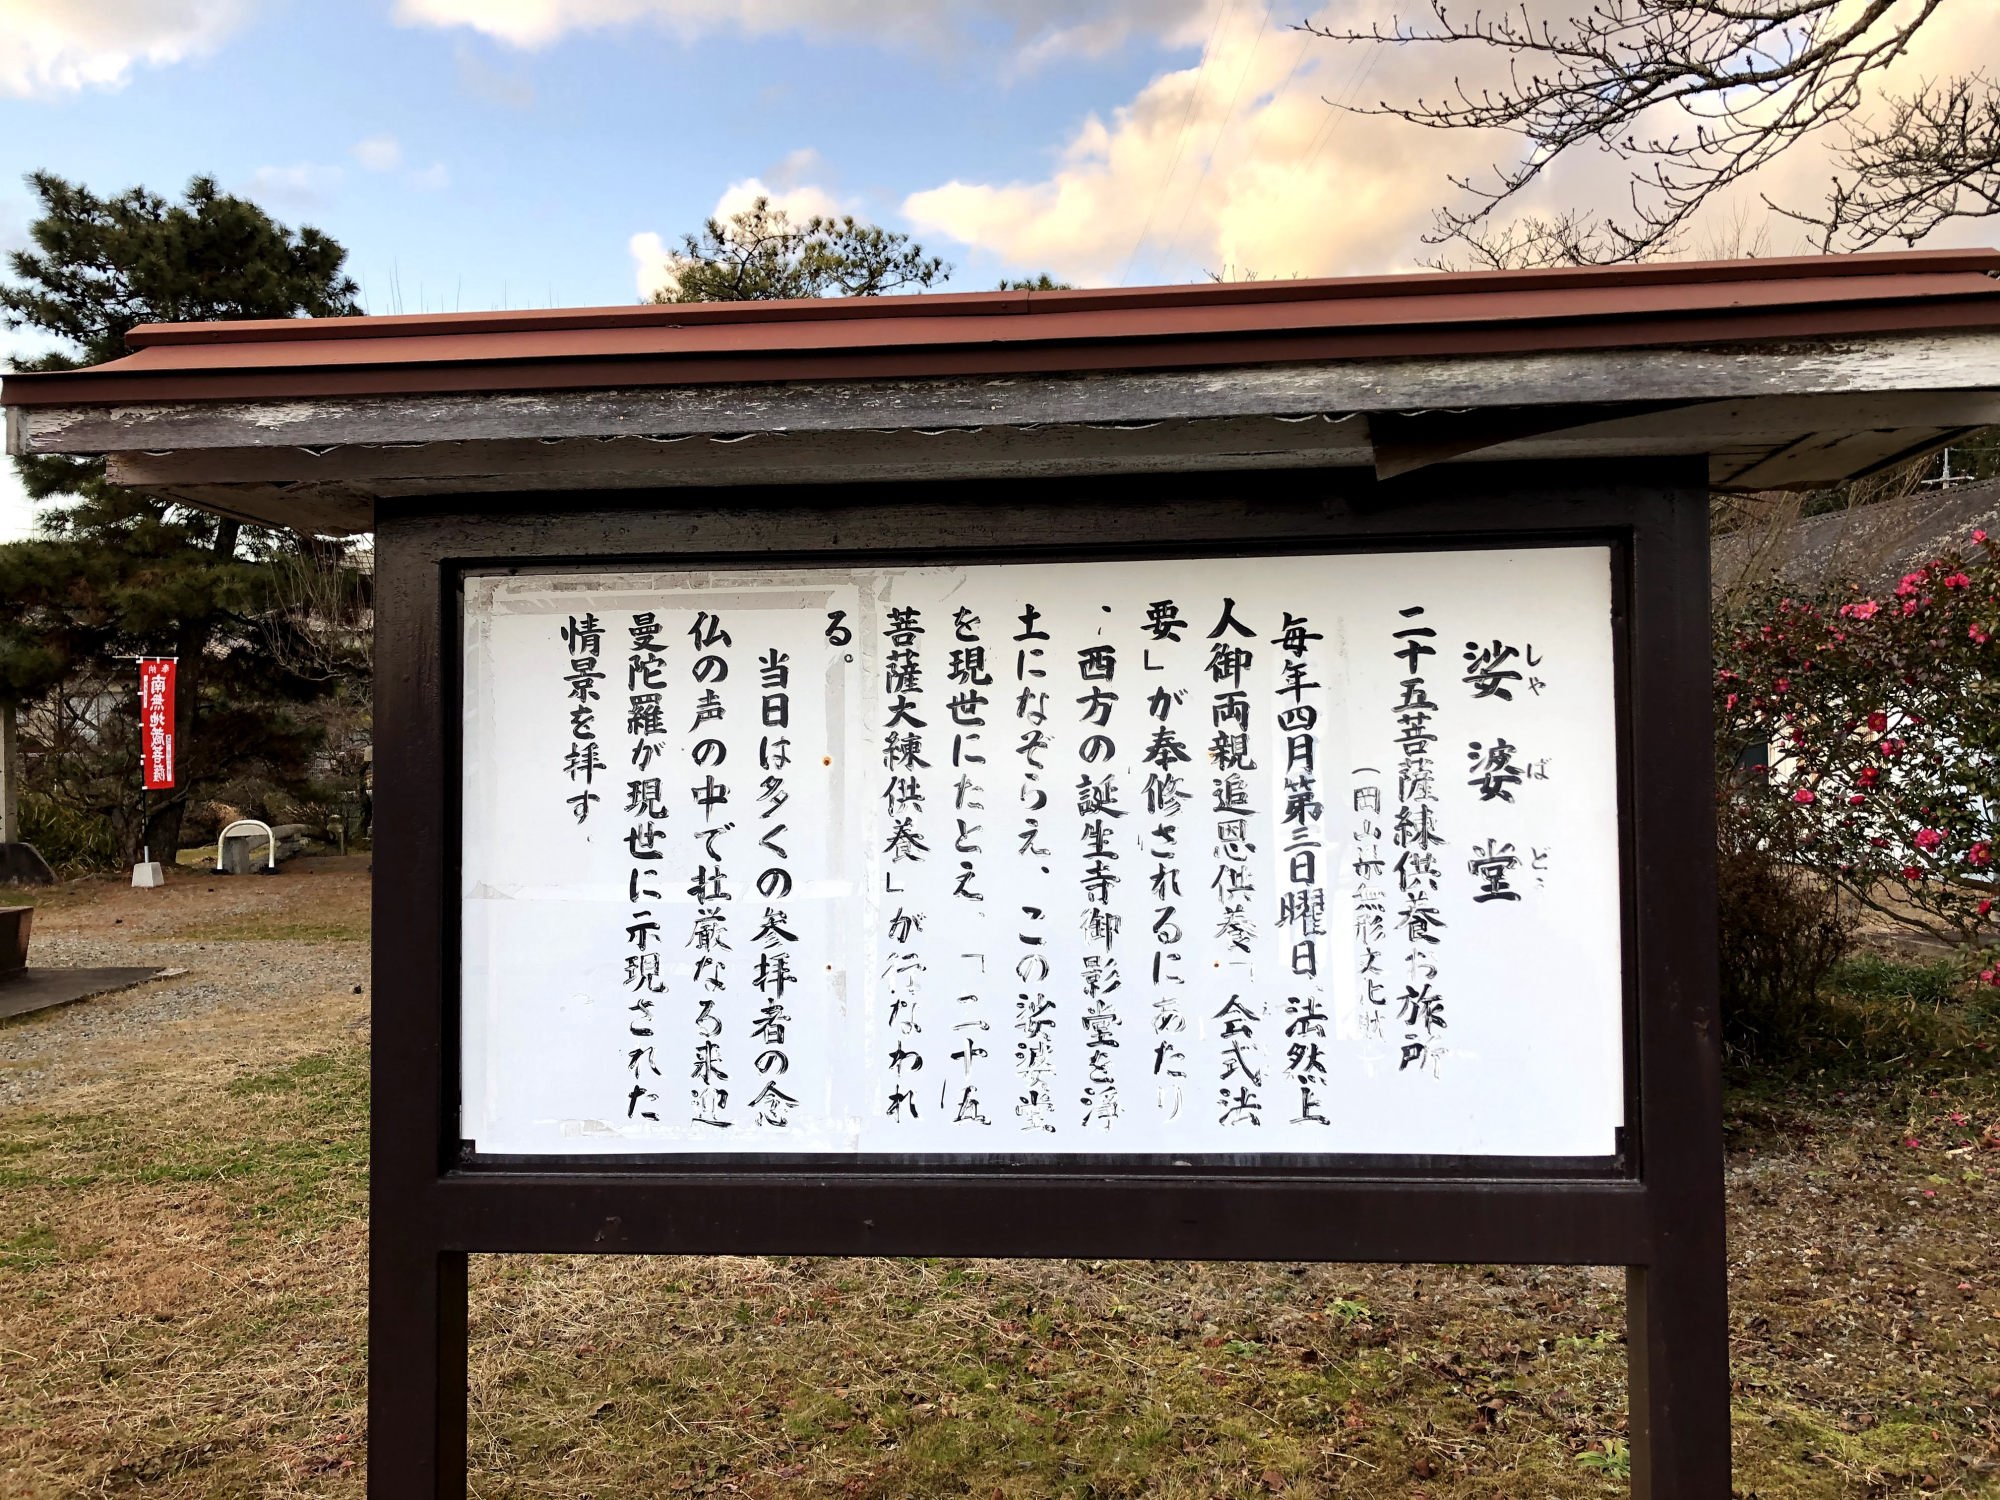 娑婆堂
しゃばどう
二十五菩薩練供養お旅所
(岡山県無形文化財)
毎年四月第三日曜日、法然上
人御両親追恩供養「会式法
要」が奉修されるにあたり
、西方の誕生寺御影堂を浄
土になぞらえ、この娑婆堂
を現世にたとえ、「二十五
菩薩大練供養」が行なわれ
る。
当日は多くの参拝者の念
仏の声の中で荘厳なる来迎
曼陀羅が現世に示現された
情景を拝す。
奉納
南無地蔵菩薩